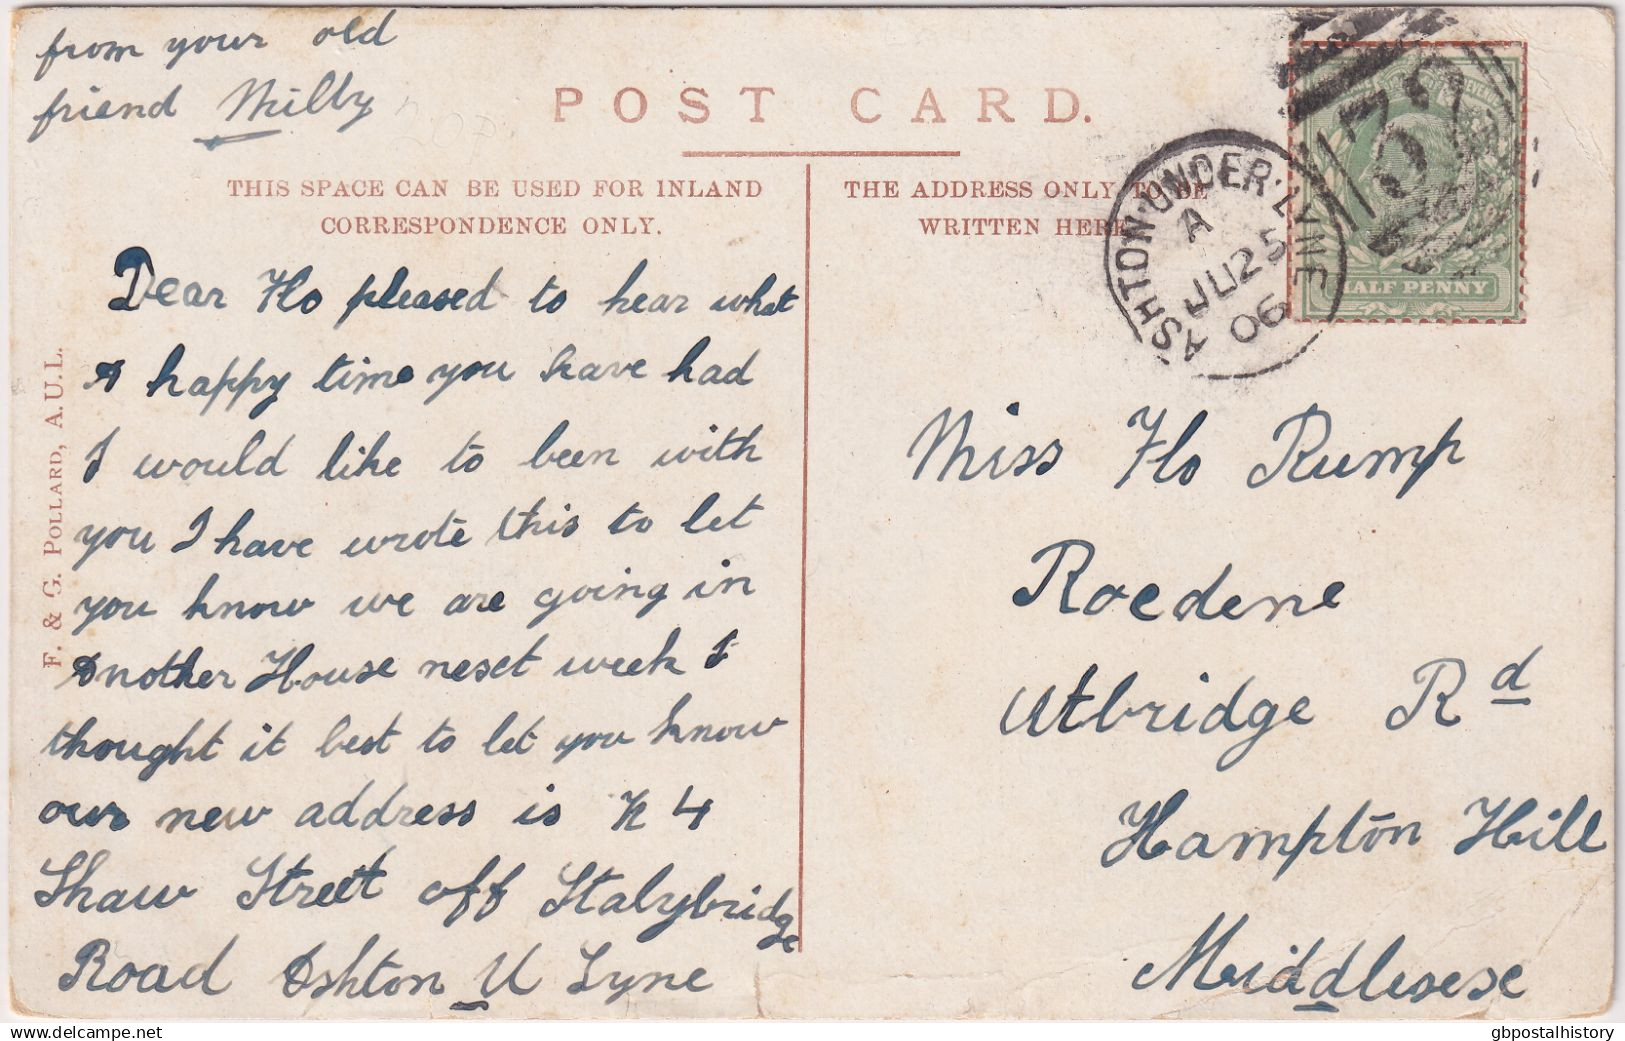 from your old
friend Milly
20p
POST CARD.
THIS SPACE CAN BE USED FOR INLAND
CORRESPONDENCE ONLY.
THE ADDRESS ONLY TO BE
WRITTEN HERE
ASHTON-UNDER-LYNE
A
JU 25
06
HALF PENNY
F. & G. POLLARD, A.U.L.
Dear Flo pleased to hear what
A happy time you have had
I would like to been with
you I have wrote this to let
you know we are going in
Another House nesct week I
thought it best to let you know
our new address is 4
Shaw Street off Stalybridge
Road Ashton U Lyne
Miss Flo Rump
Roedene
Utbridge Rd
Hampton Hill
Middlesese
gbpostalhistory